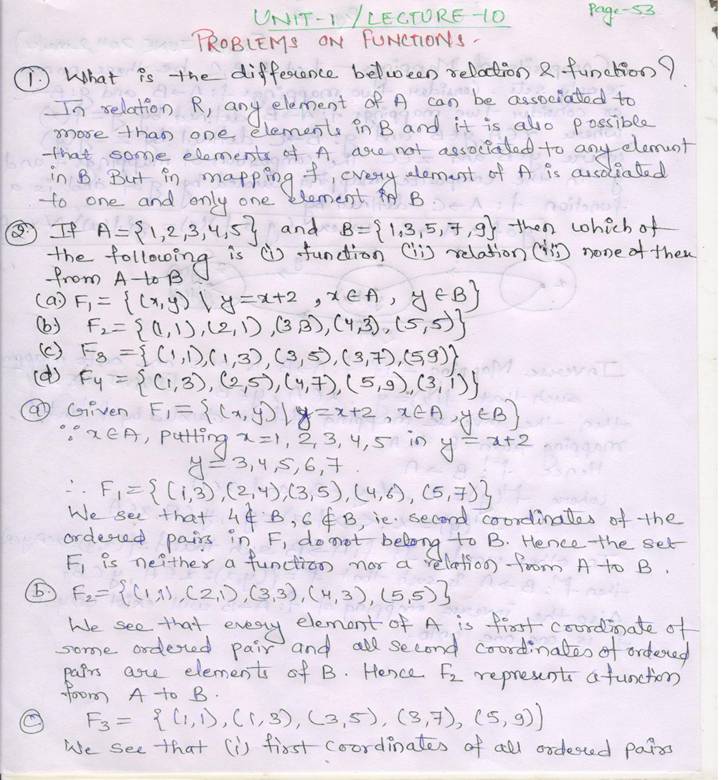 Page-53
UNIT-1 / LECTURE-10
PROBLEMS ON FUNCTIONS.
(1.) What is the difference between relation & function?
In relation R, any element of A can be associated to
more than one elements in B and it is also possible
that some elements of A are not associated to any element
in B. But in mapping f, every element of A is associated
to one and only one element in B.
(2.) If A={1,2,3,4,5} and B={1,3,5,7,9} then which of
the following is (i) function (ii) relation (iii) none of them
from A to B.
(a) F₁ = {(x,y) \ y=x+2, x∈A, y∈B}
(b) F₂ = {(1,1),(2,1),(3,3),(4,3),(5,5)}
(c) F₃ = {(1,1),(1,3),(3,5),(3,7),(5,9)}
(d) F₄ = {(1,3),(2,5),(4,7),(5,9),(3,1)}
(a) Given F₁ = {(x,y) \ y=x+2, x∈A, y∈B}
∵ x∈A, putting x=1,2,3,4,5 in y=x+2
y=3,4,5,6,7.
∴ F₁={(1,3),(2,4),(3,5),(4,6),(5,7)}
We see that 4∉B, 6∉B, ie. second coordinates of the
ordered pairs in F₁ do not belong to B. Hence the set
F₁ is neither a function nor a relation from A to B.
(b.) F₂={(1,1),(2,1),(3,3),(4,3),(5,5)}
We see that every element of A is first coordinate of
some ordered pair and all second coordinates of ordered
pairs are elements of B. Hence F₂ represents a function
from A to B.
(c) F₃ = {(1,1),(1,3),(3,5),(3,7),(5,9)}
We see that (i) first coordinates of all ordered pairs